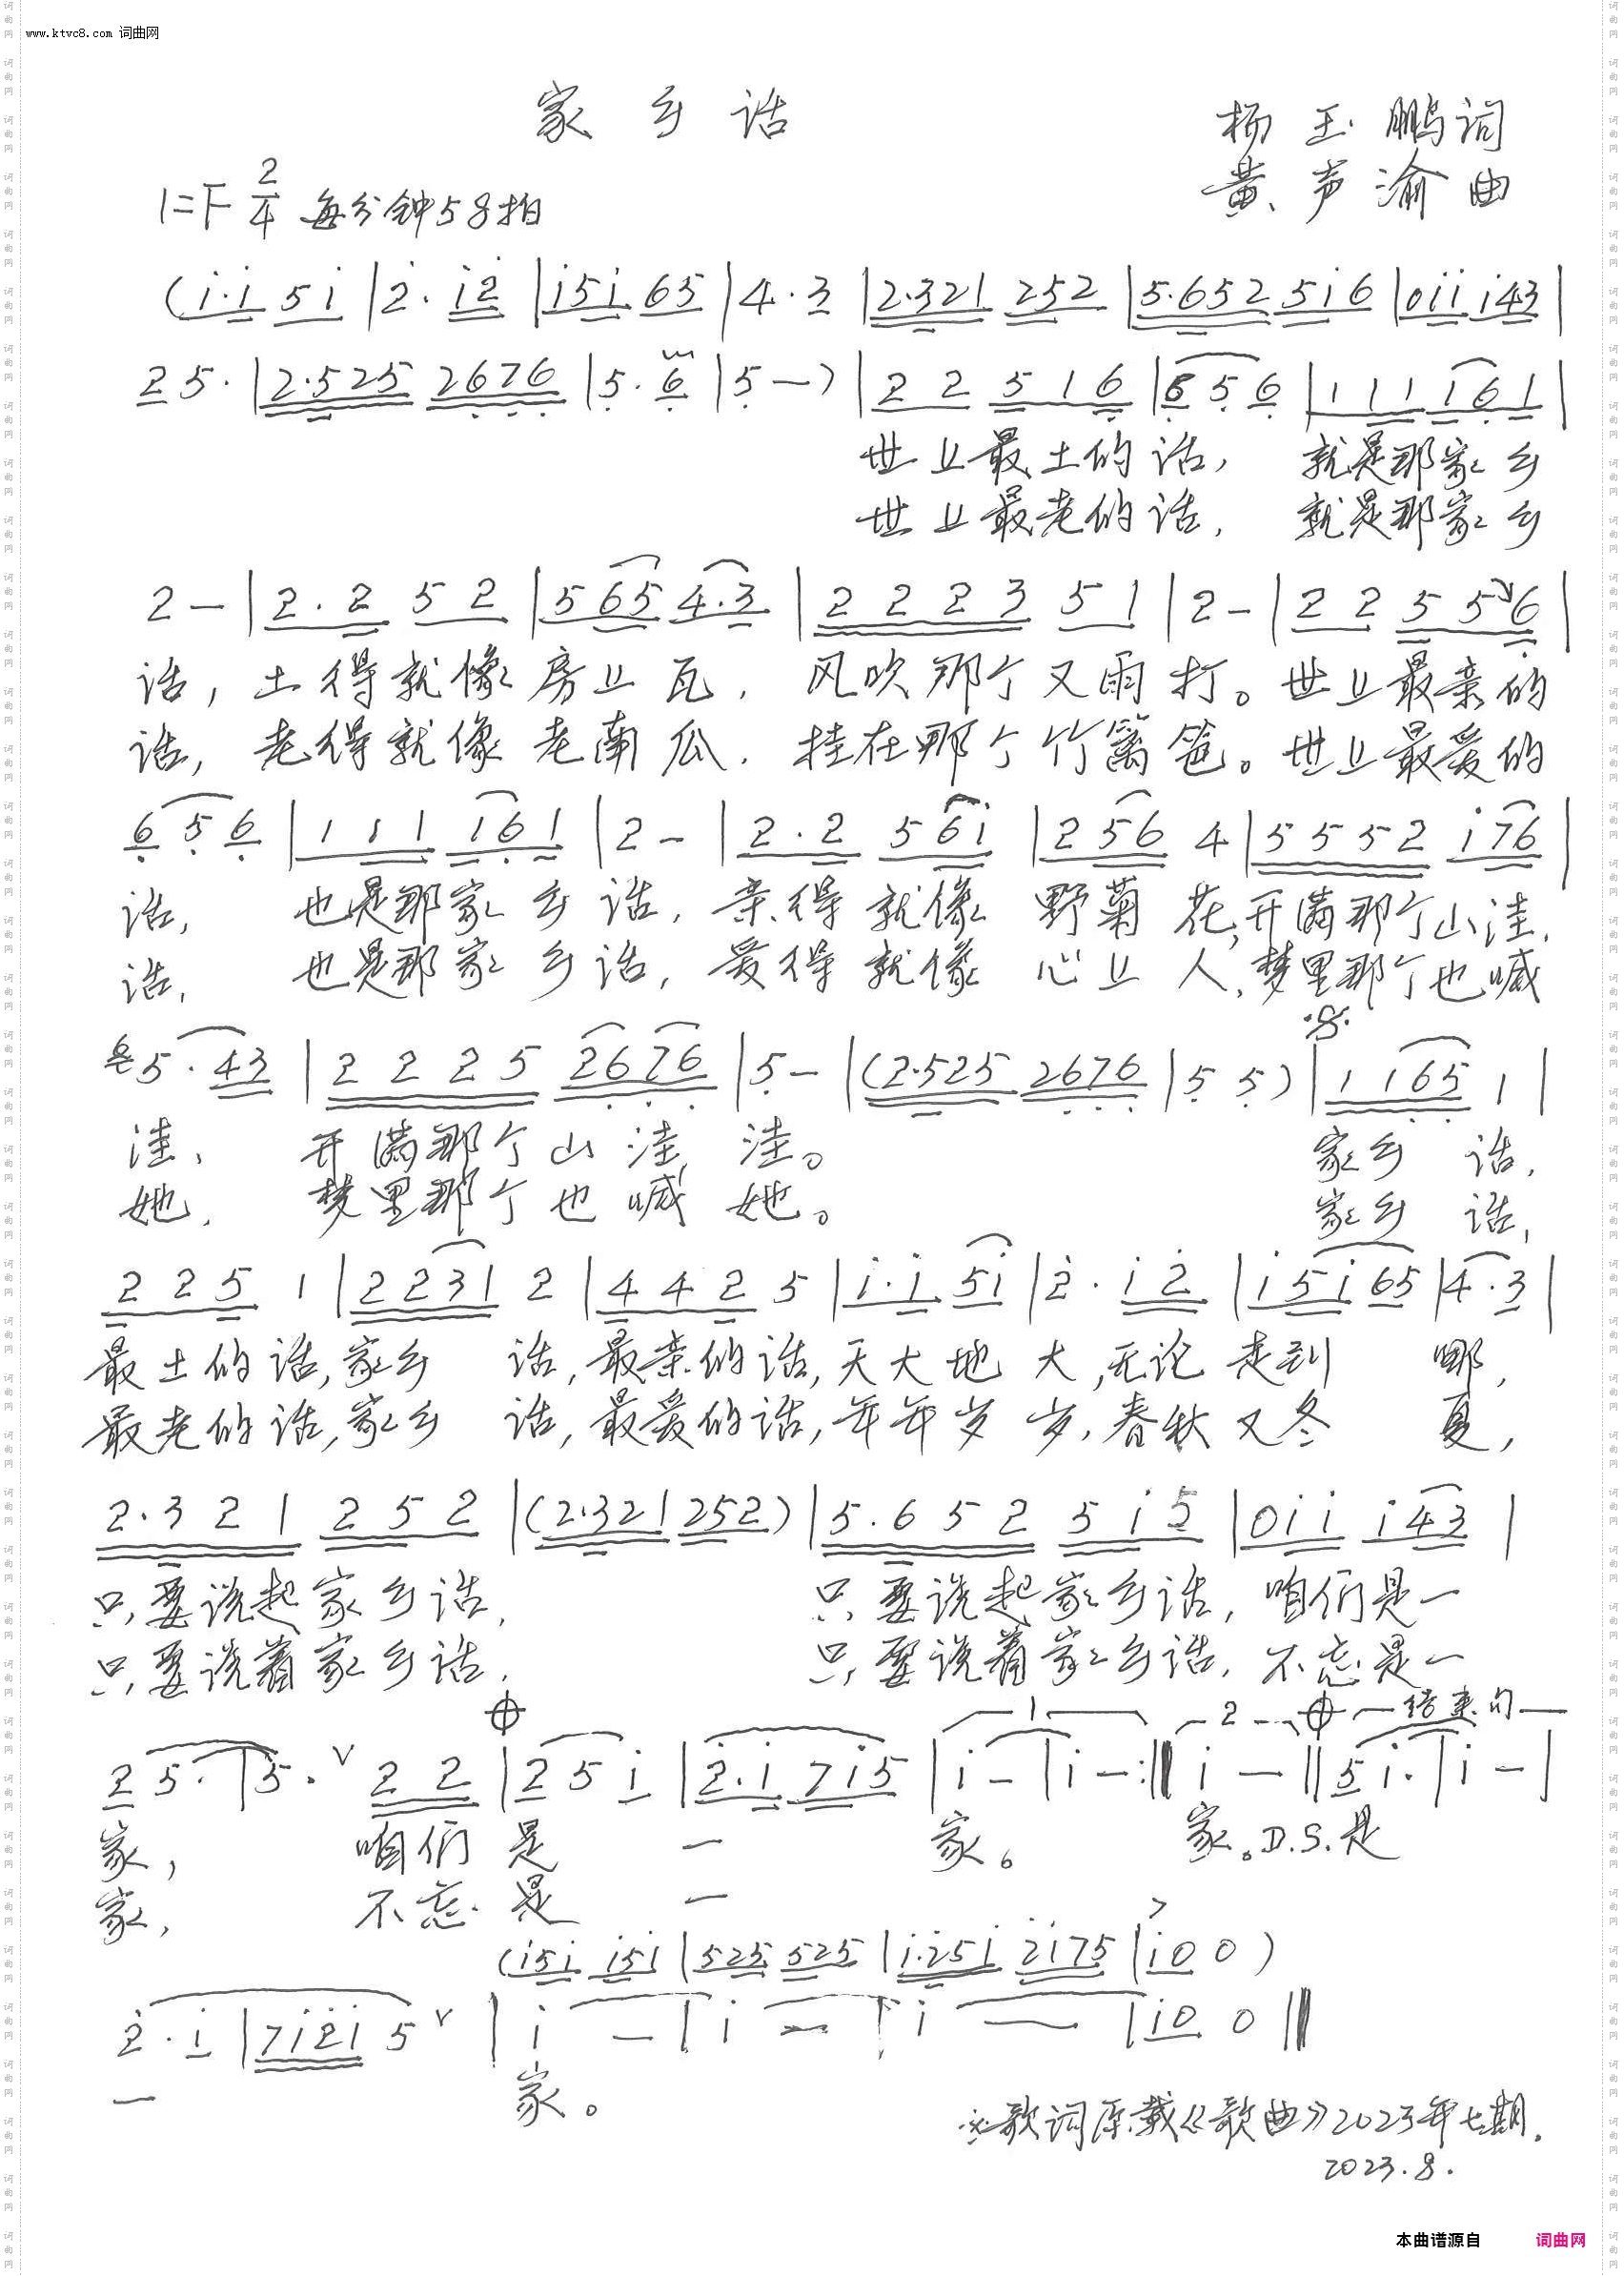 www.ktvc8.com 词曲网
家乡话
杨玉鹏词
黄声渝曲
1=F 2/4 每分钟58拍
(i·i 5i|2·i2|i5i 65|4·3|2·321 252|5·652 5i6|0ii i43|
25·|2·525 2676|5·6|5—)|2 2 5 1 6|6 5 6|1 1 1 1 6 1|
世上最土的话, 就是那家乡
世上最老的话, 就是那家乡
2—|2·2 5 2|5 65 4·3|2 2 2 3 5 1|2—|2 2 5 5 6|
话,土得就像房上瓦,风吹那个又雨打。世上最亲的
话,老得就像老南瓜,挂在那个竹篱笆。世上最爱的
6 5 6|1 1 1 1 6 1|2—|2·2 5 6i|2 56 4|5 5 5 2 i 76|
话, 也是那家乡话,亲得就像野菊花,开满那个山洼,
话, 也是那家乡话,爱得就像心上人,梦里那个也喊
6 5·43|2 2 2 5 2 6 7 6|5—|(2·525 2676|5 5)|1 1 65 1|
洼, 开满那个山洼洼。 家乡话,
她, 梦里那个也喊她。 家乡话,
2 2 5 1|2 2 31 2|4 4 2 5|i·i 5i|2·i 2|i 5 i 65|4·3|
最土的话,家乡话,最亲的话,天大地大,无论走到哪,
最老的话,家乡话,最爱的话,年年岁岁,春秋又冬夏,
2·3 2 1 2 5 2|(2·321 252)|5·6 5 2 5 i 5|0 i i i 43|
只要说起家乡话, 只要说起家乡话,咱们是一
只要说着家乡话, 只要说着家乡话,不忘是一
1 2 结束句
2 5·|5·V 2 2|2 5 i|2·i 7 i 5|i—|i—:‖i—‖5 i·|i—|
家, 咱们是一家。 家。D.S.是
家, 不忘是一
(i5i i5i|525 525|i·25i 2i75|i0 0)
2·i|7i2i 5 V|i—|i—|i—|i0 0‖
一 家。
※歌词原载《歌曲》2023年七期.
2023.8.
本曲谱源自 词曲网